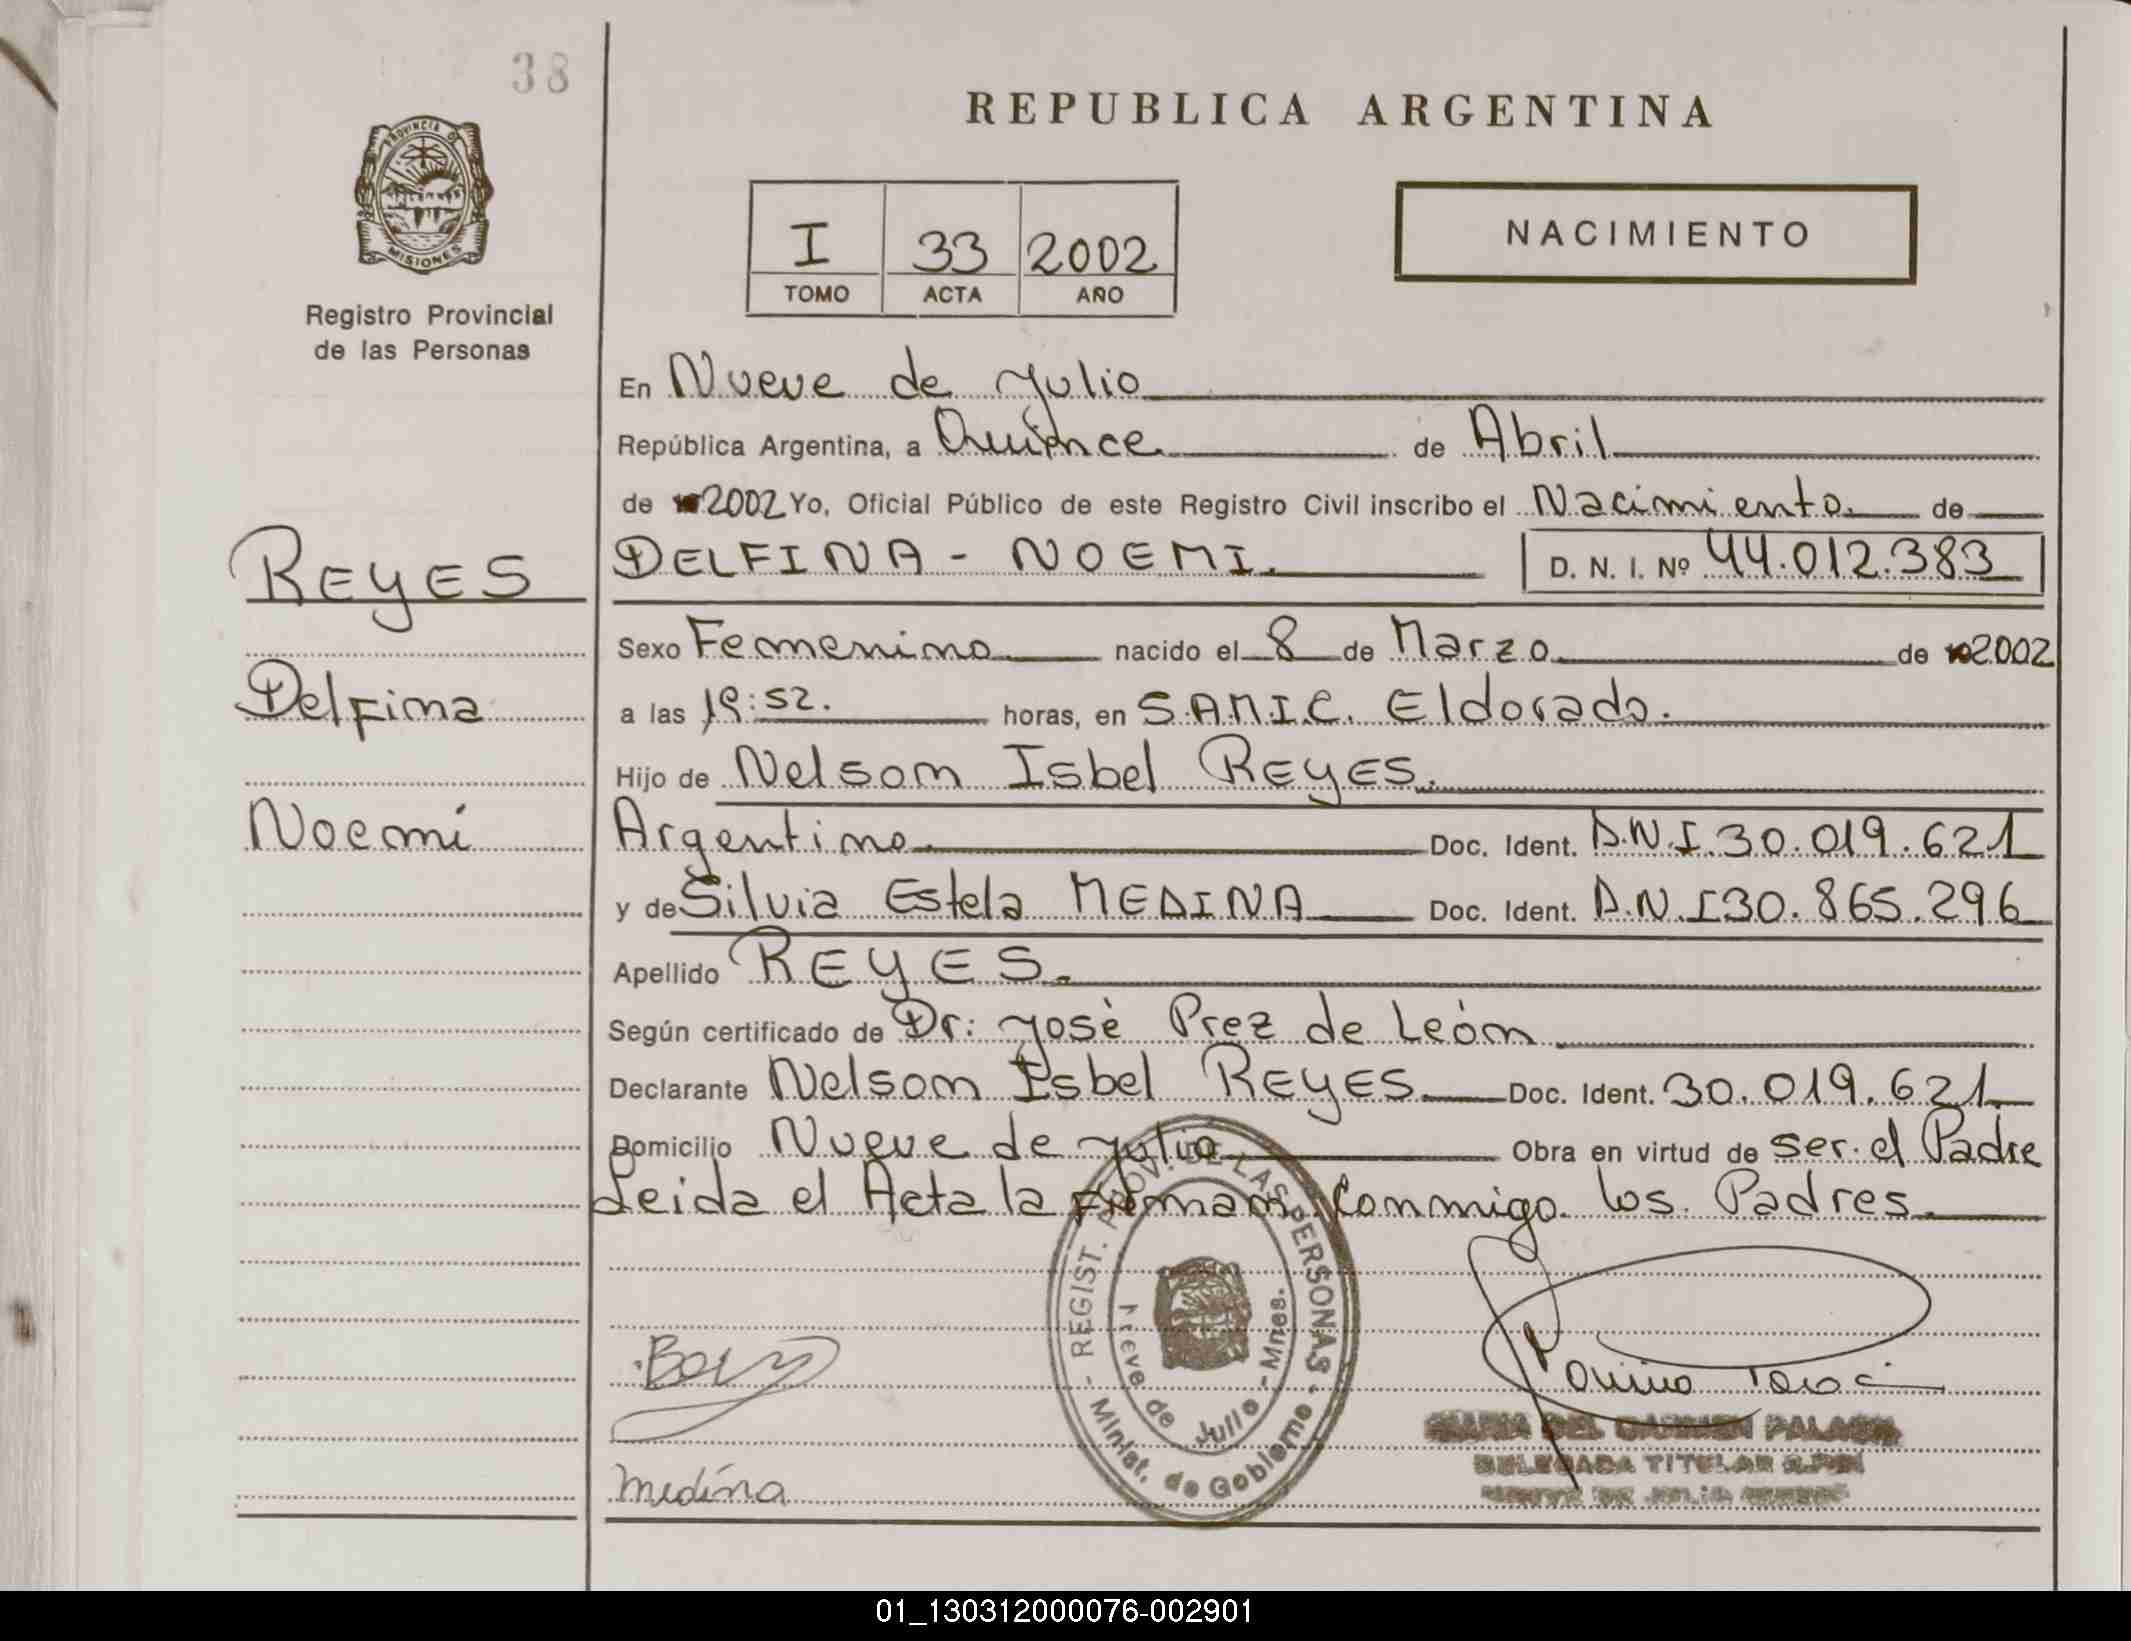 38
PROVINCIA DE
MISIONES
Registro Provincial
de las Personas
REPUBLICA ARGENTINA
I 33 2002
TOMO ACTA AÑO
NACIMIENTO
En Nueve de Julio
República Argentina, a Quince de Abril
de 2002 Yo, Oficial Público de este Registro Civil inscribo el Nacimiento de
DELFINA - NOEMI. D. N. I. Nº 44.012.383
REYES
Sexo Femenino nacido el 8 de Marzo de 2002
Delfina
a las 19:52. horas, en S.A.M.I.C. Eldorado.
Hijo de Nelson Isbel REYES.
Noemí
Argentino. Doc. Ident. D.N.I. 30.019.621
y de Silvia Estela MEDINA Doc. Ident. D.N.I 30.865.296
Apellido REYES.
Según certificado de Dr: José Prez de León
Declarante Nelson Isbel REYES Doc. Ident. 30.019.621
Domicilio Nueve de Julio Obra en virtud de ser el Padre
Leida el Acta la Firman Conmigo los Padres.
REGIST. PROV. DE LAS PERSONAS
Nueve de Julio - Mnes.
Minist. de Gobierno
MARIA DEL CARMEN
DELEGADA TITULAR
NUEVE DE JULIO
medina
01_130312000076-002901